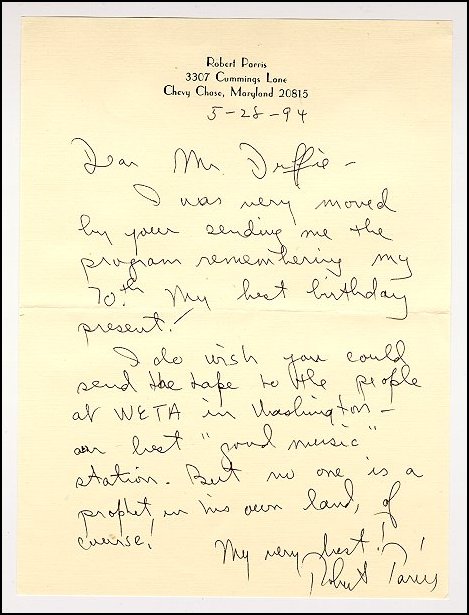 Robert Parris
3307 Cummings Lane
Chevy Chase, Maryland 20815
5-28-94
Dear Mr. Druffie -
I was very moved
by your sending me the
program remembering my
70th. My best birthday
present!
I do wish you could
send the tape to the people
at WETA in Washington -
our best "good music"
station. But no one is a
prophet in his own land, of
course!
My very best!
Robert Parris